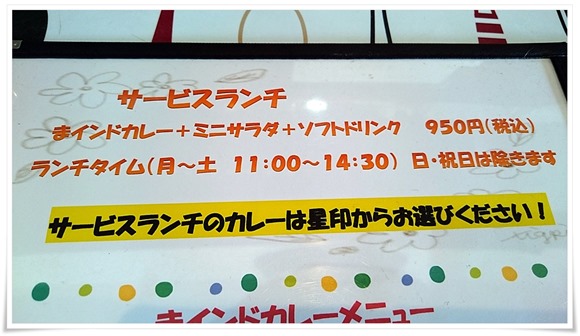 サービスランチ
まインドカレー＋ミニサラダ＋ソフトドリンク　950円（税込）
ランチタイム（月～土　11:00～14:30）　日・祝日は除きます
サービスランチのカレーは星印からお選びください！
まインドカレーメニュー